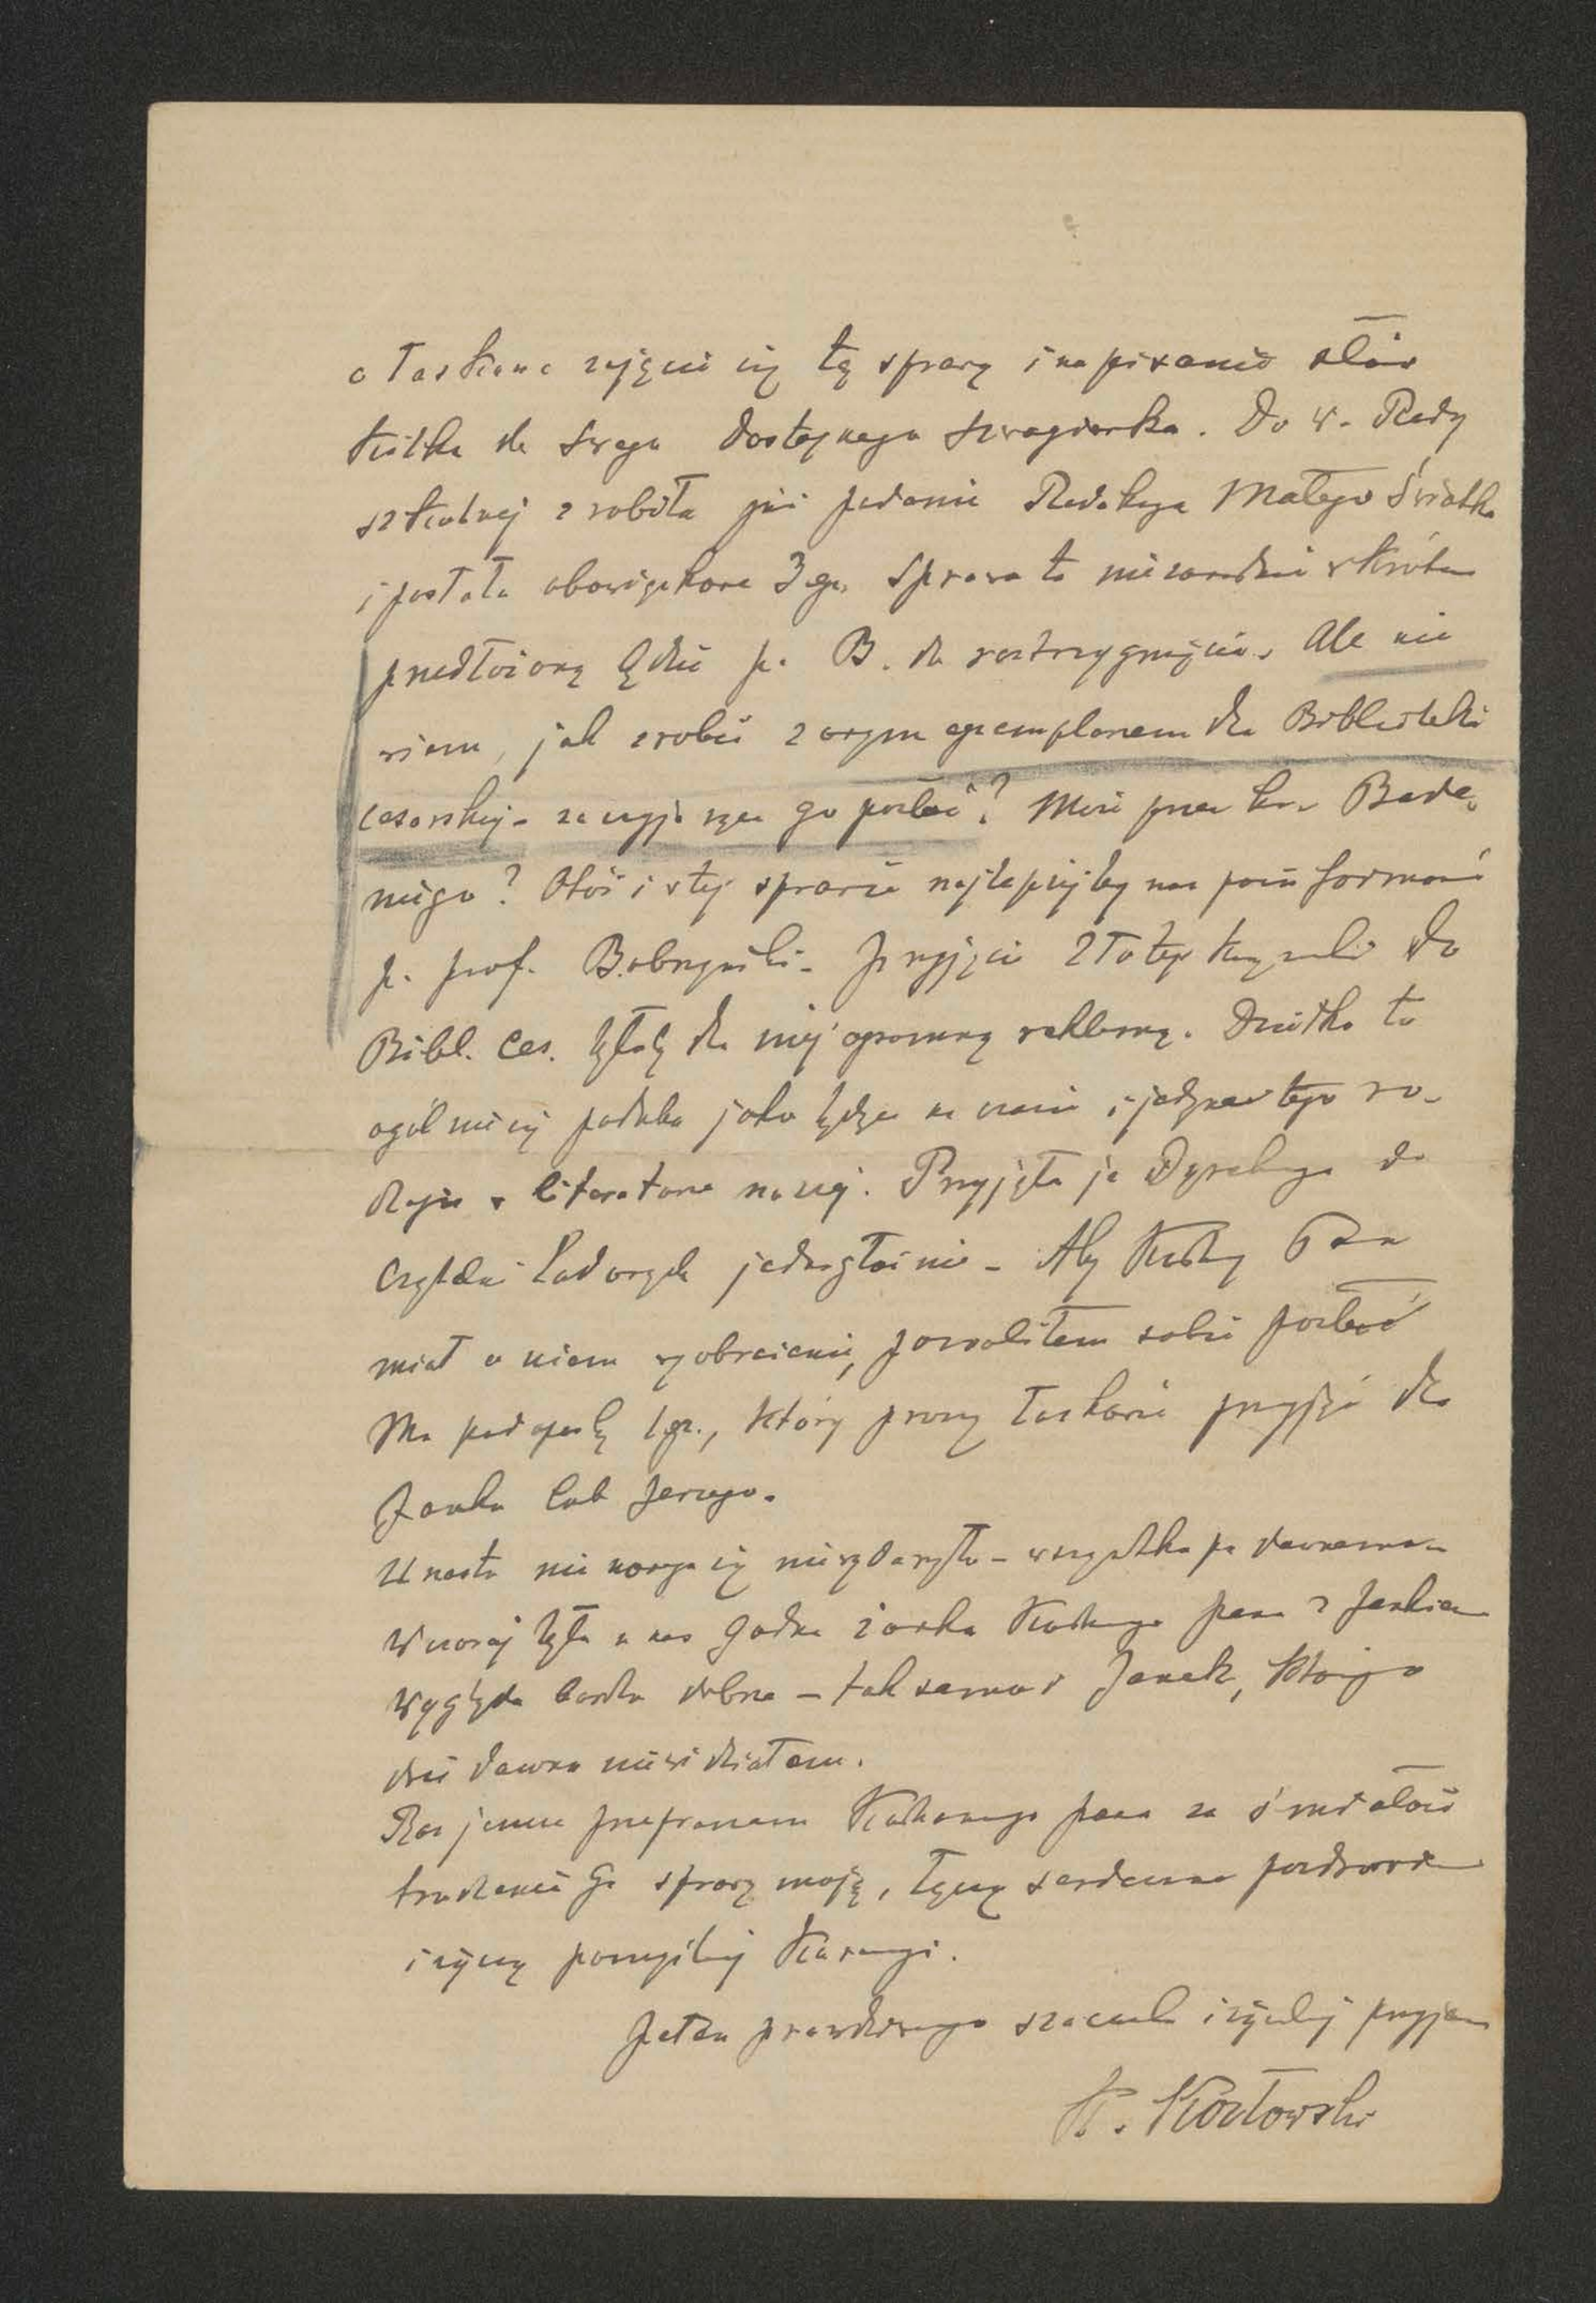 o łaskawe zajęcie się tą sprawą i napisanie słów
kilka do swego dostojnego szwagierka. Do w. Rady
szkolnej zrobiła już podanie Redakcya Małego Światka
i posłała obowiązkowe 3 egz. Sprawa ta niezawodnie wkrótce
przedłożoną będzie p. B. do rozstrzygnięcia. Ale nie
wiem, jak zrobić z owym egzemplarzem dla Biblioteki
cesarskiej - za czyją go posłać? Może przez hr. Bade-
niego? Otóż i w tej sprawie najlepiej by nas poinformował
p. prof. Bobrzyński. Przyjęcie Złotej do
Bibl. Ces. byłoby dla niej ogromną reklamą. Dziełko to
ogólnie się podoba jako będące na czasie i jedyne tego ro-
dzaju w literaturze naszej. Przyjęła je Dyrekcya do
Czytelni Ludowych jednogłośnie - Aby Kochany Pan
miał o niem wyobrażenie, pozwoliłem sobie posłać
Mu pod opaską 1 egz., który proszę łaskawie przyjąć dla
Janka lub Jerzego.
U nas tu nic nowego się nie wydarzyło - wszystko po dawnemu.
Wczoraj była u nas Godna żonka Kochanego pana z Jankiem
Wygląda bardzo dobrze - tak samo i Janek, którego
dość dawno nie widziałem.
Raz jeszcze przepraszam Kochanego pana za śmiałość
trudzenia Go sprawą moją, łączę serdeczne pozdrowienia
i życzę pomyślnej Kuracyi.
Pełen prawdziwego szacunku i życzliwy przyjaciel
K. Kozłowski